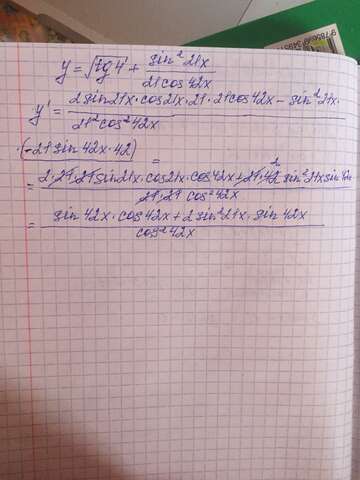 y = √tg 4 + sin²21x / 21cos42x
y' = 2sin21x·cos21x·21·21cos42x − sin²21x· / 21²cos²42x
·(−21sin42x·42) =
= 2·21·21sin21x·cos21x·cos42x+21·42sin²21x sin42x / 21·21 cos²42x
= sin42x·cos42x+2sin²21x·sin42x / cos²42x